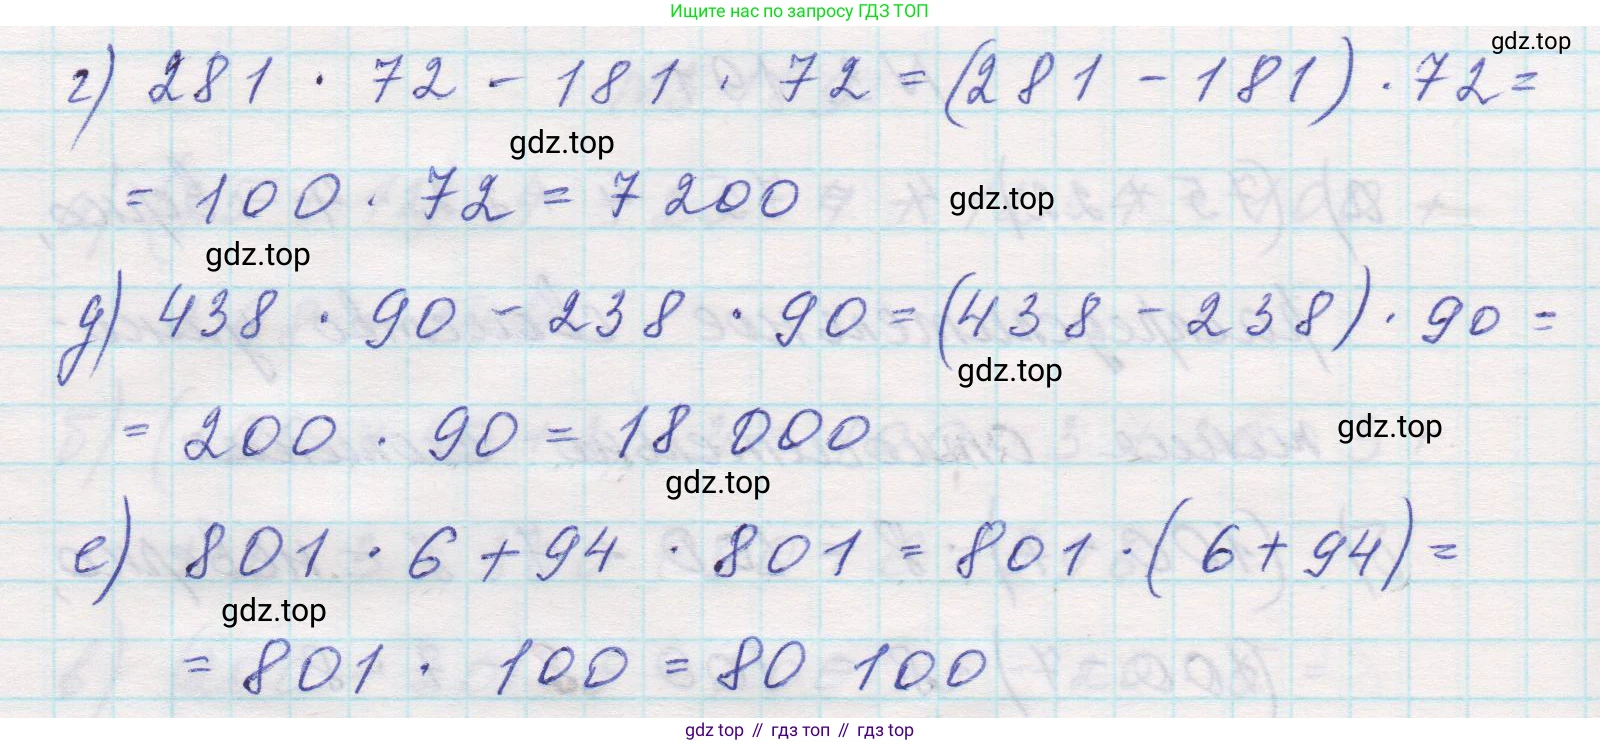 Ищите нас по запросу ГДЗ ТОП
gdz.top
г) 281 · 72 - 181 · 72 = (281 - 181) · 72 =
gdz.top
= 100 · 72 = 7 200
gdz.top
gdz.top
д) 438 · 90 - 238 · 90 = (438 - 238) · 90 =
gdz.top
= 200 · 90 = 18 000
gdz.top
gdz.top
е) 801 · 6 + 94 · 801 = 801 · (6 + 94) =
gdz.top
= 801 · 100 = 80 100
gdz top // гдз топ // гдз top